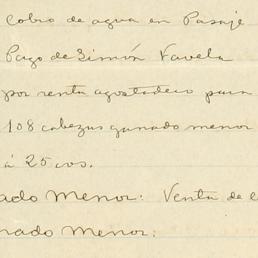 cobro de agua en Pasaje
Pago de Simón Varela
por renta agostadero para
108 cabezas ganado menor
á 25 cvs.
ado Menor: Venta de
nado Menor: